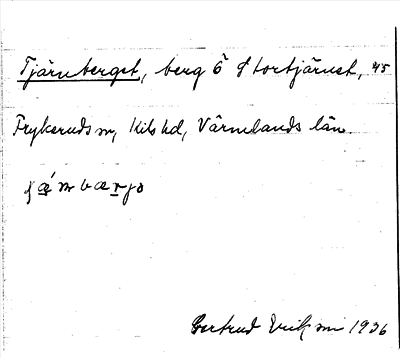 Tjärnberget, berg Ö Stortjärnet, 45
Frykeruds sn, Kils hd, Värmlands län.
Gertrud Eriksson 1936